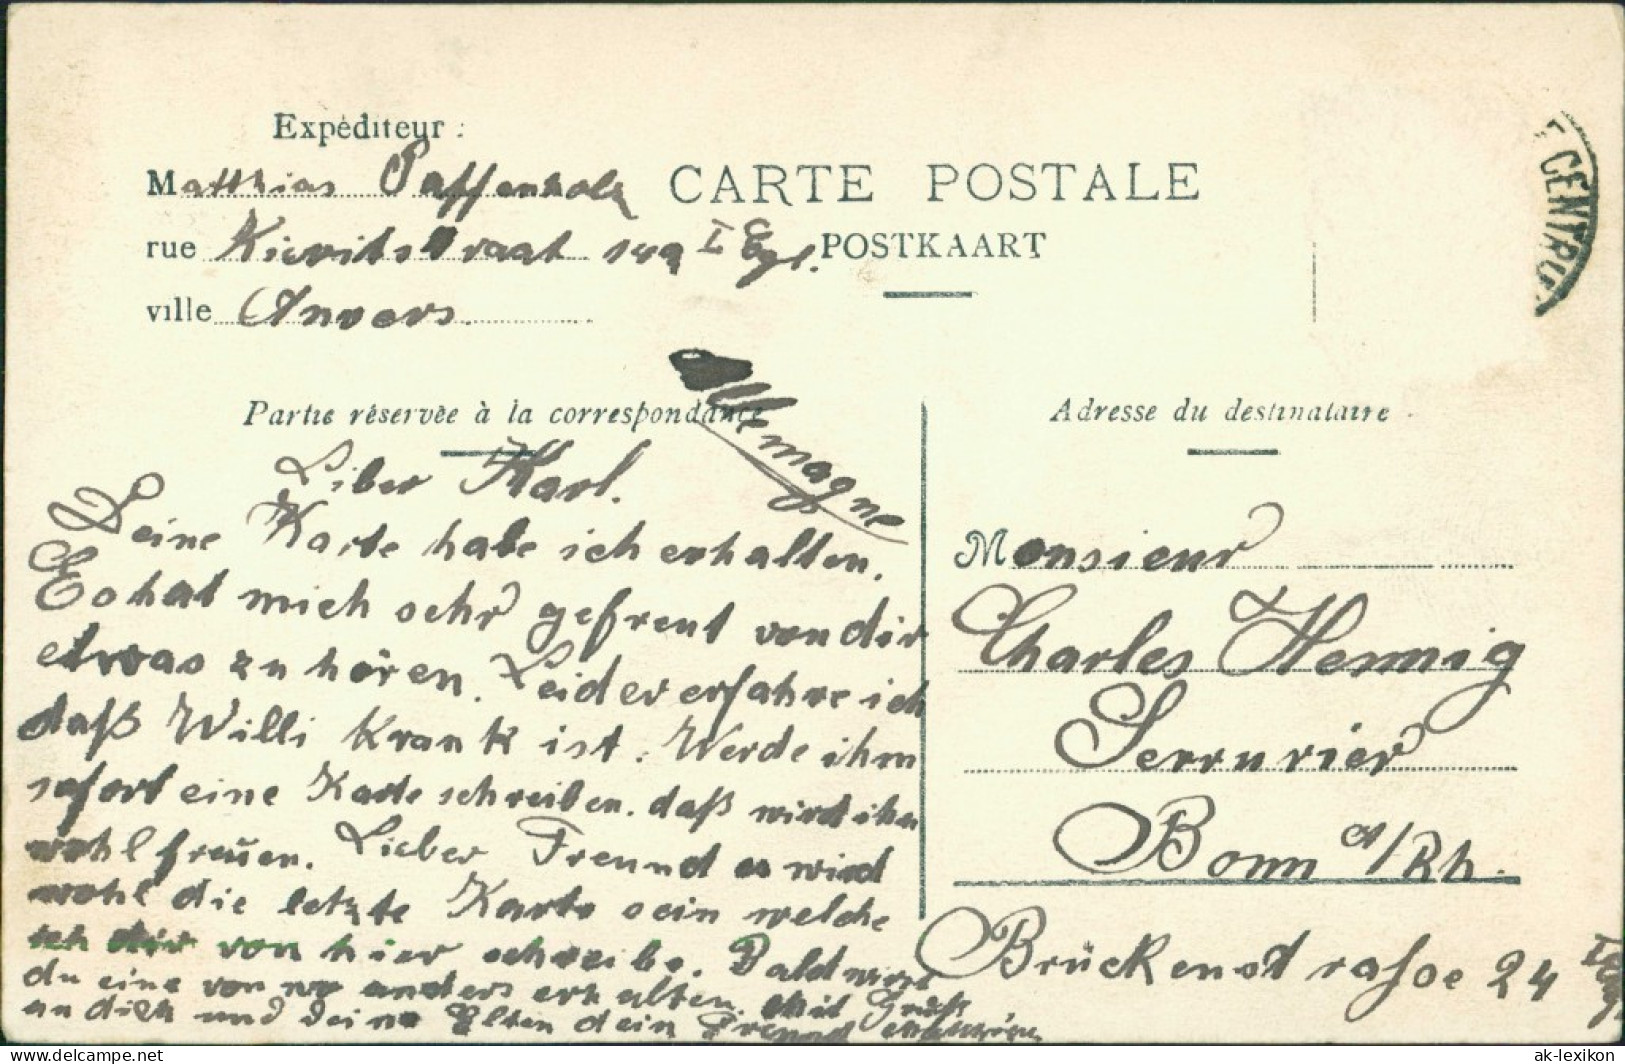 Expéditeur :
Matthias Paffenholz
rue Kievitstraat 149 I Egl.
ville Anvers.
CARTE POSTALE
POSTKAART
CENTRE
Partie réservée à la correspondance
Allemagne
Adresse du destinataire
Liber Karl.
Deine Karte habe ich erhalten.
Es hat mich sehr gefreut von dir
etwas zu hören. Leider erfahre ich
daß Willi Krank ist. Werde ihm
sofort eine Karte schreiben. daß wird ihn
wohl freuen. Lieber Freund es wird
wohl die letzte Karte sein welche
ich dir von hier schreibe. Bald wirst
du eine von wo anders erhalten. Mit Gruß
an dich und deine Elten dein Freund
Monsieur
Charles Hennig
Serrurier
Bonn a/Rh.
Brückenstrasse 24
ak-lexikon